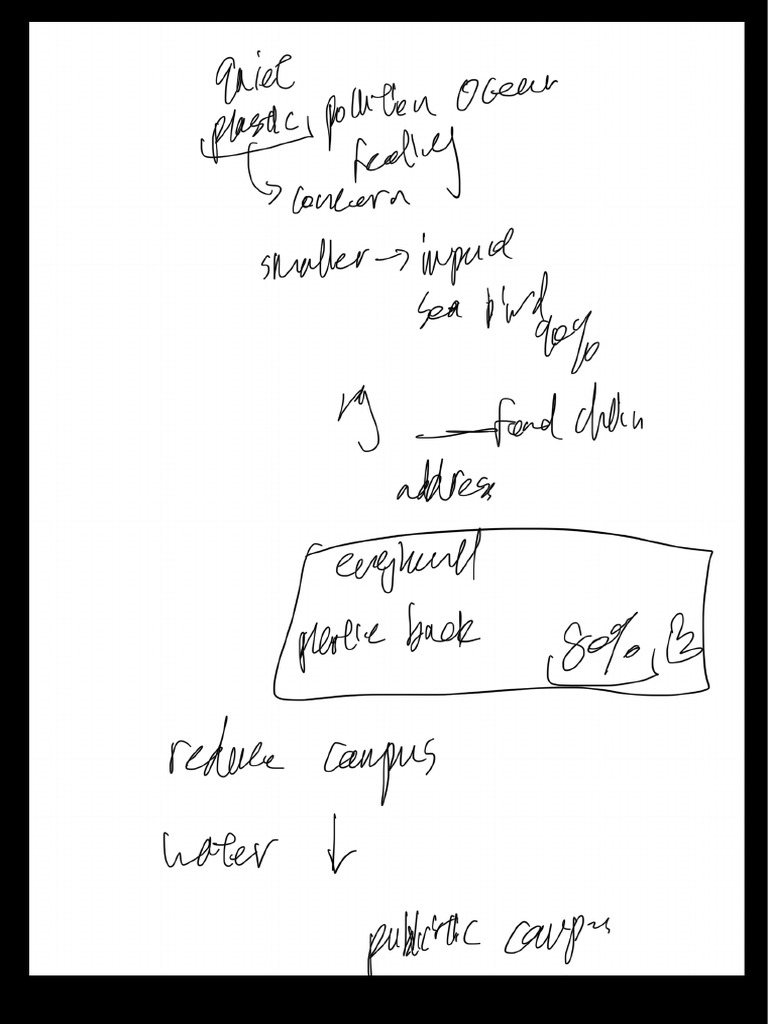 quiet
plastic, pollution ocean
feeding
concern
smaller → impact
sea bird
90%
food chain
address
plastic back 80%
reduce campus
water ↓
campus